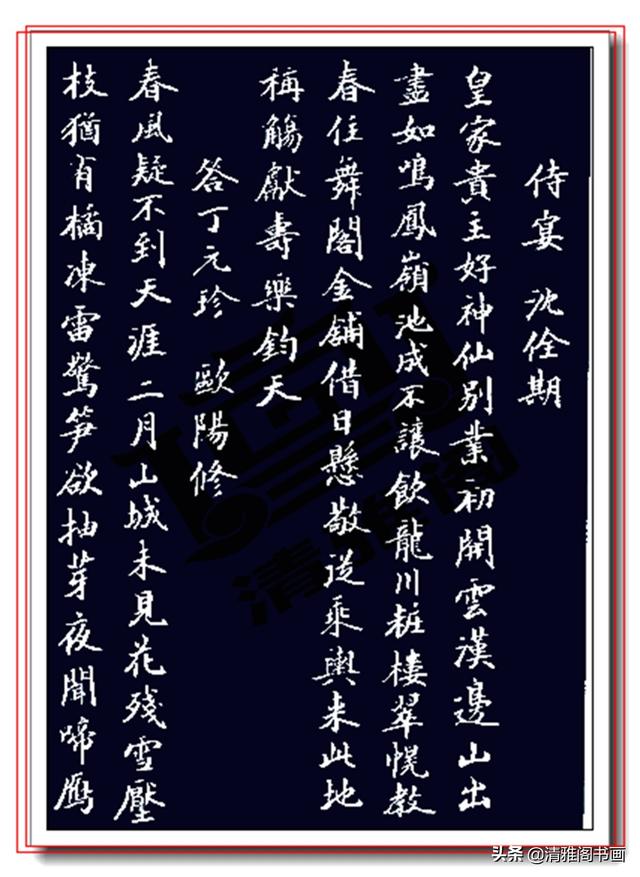 侍宴 沈佺期
皇家貴主好神仙別業初開雲漢邊山出
盡如鳴鳳嶺池成不讓飲龍川粧樓翠幌教
春住舞閣金舖借日懸敬從乘輿来此地
稱觴獻壽樂鈞天
答丁元珍 歐陽修
春風疑不到天涯二月山城未見花殘雪壓
枝猶有橘凍雷驚笋欲抽芽夜聞啼鴈
清雅阁
头条@清雅阁书画